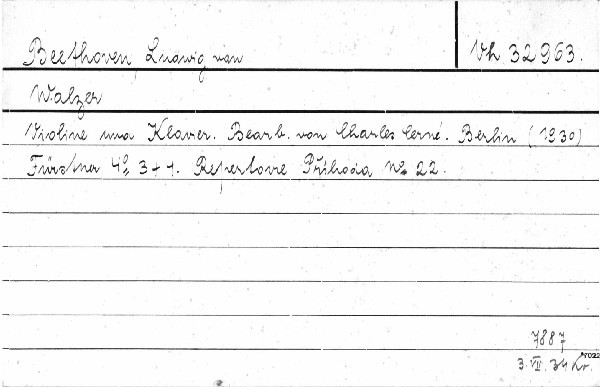 Beethoven, Ludwig van
Vh 32963.
Walzer
Violine und Klavier. Bearb. von Charles Cerné. Berlin (1930)
Fürstner 4º, 3+1. Repertoire Příhoda No 22.
7887
3. VII. 34 Kr.